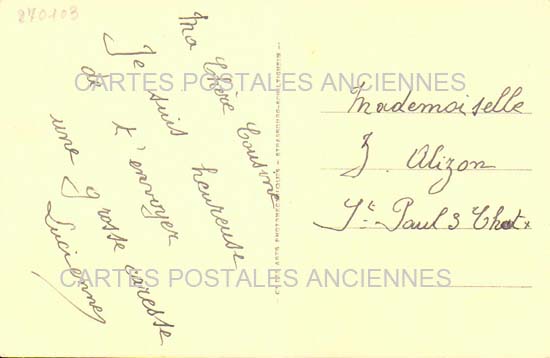 270103
Ma Chère Cousine
Je suis heureuse
de t'envoyer
une grosse caresse
Lucienne
CARTES POSTALES ANCIENNES
CARTES POSTALES ANCIENNES
Mademoiselle
J. Alizon
St Paul 3 Chatx